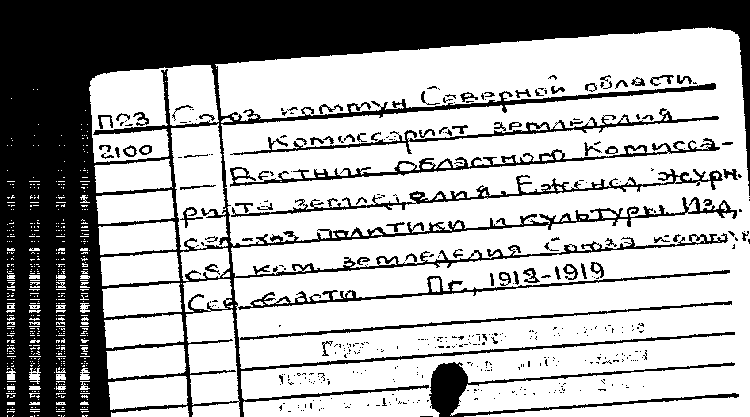 П23 Союз коммун Северной области
2100 Комиссариат земледелия
Вестник Областного Комисса-
риата земледелия. Еженед. журн.
сел.-хоз политики и культуры. Изд.
обл ком. земледелия Союза коммун
Сев. области Пг., 1918-1919